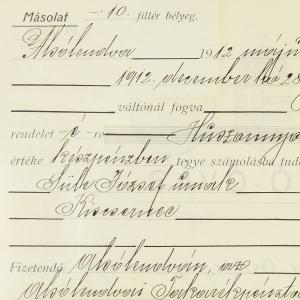 Másolat –·10. fillér bélyeg.
Alsólendva 1912 máju
1912. december hó 28
váltónál fogva
rendelet –é –re Huszonnyo
értéke készpénzben, tegye számolásba tud
Süle József úrnak
Kiscsernec
Fizetendő Alsólendván, az
Alsólendvai Takarékpénzt